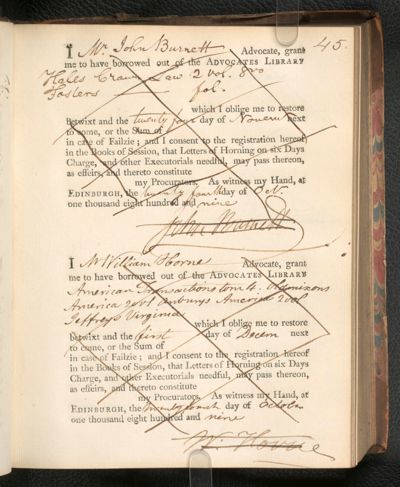 45.
I Mr. John Burnett Advocate, grant
me to have borrowed out of the ADVOCATES LIBRARY
Hales Crown Law 2 vol. 8vo
Fosters — fol.
which I oblige me to restore
betwixt and the twenty four day of Novem next
to come, or the Sum of
in case of Failzie; and I consent to the registration hereof
in the Books of Session, that Letters of Horning on six Days
Charge, and other Executorials needful, may pass thereon,
as effeirs, and thereto constitute
my Procurators. As witness my Hand, at
EDINBURGH, the twenty fourth day of Oct
one thousand eight hundred and nine
John Burnett
I Mr William Horne Advocate, grant
me to have borrowed out of the ADVOCATES LIBRARY
American Transactions tom 4. Oldmixons
America 2 vol Anburys America 2 vol
Jeffreys Virginia
which I oblige me to restore
betwixt and the first day of Decem next
to come, or the Sum of
in case of Failzie; and I consent to the registration hereof
in the Books of Session, that Letters of Horning on six Days
Charge, and other Executorials needful, may pass thereon,
as effeirs, and thereto constitute
my Procurators. As witness my Hand, at
EDINBURGH, the day of October
one thousand eight hundred and nine
W. Horne